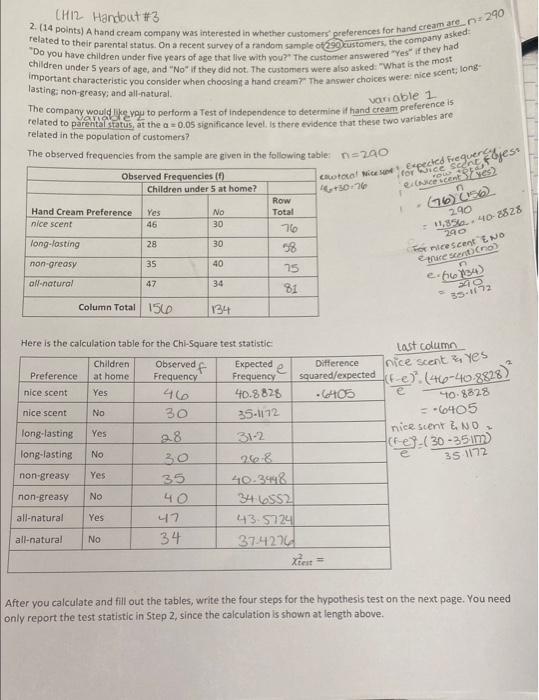 CH12 Handout #3
n=290
2. (14 points) A hand cream company was interested in whether customers' preferences for hand cream are
related to their parental status. On a recent survey of a random sample of 290 customers, the company asked:
"Do you have children under five years of age that live with you?" The customer answered "Yes" if they had
children under 5 years of age, and "No" if they did not. The customers were also asked: "What is the most
important characteristic you consider when choosing a hand cream?" The answer choices were: nice scent; long-
lasting; non-greasy; and all-natural.
variable 1
The company would like you to perform a Test of Independence to determine if hand cream preference is
variable 2
related to parental status, at the α = 0.05 significance level. Is there evidence that these two variables are
related in the population of customers?
The observed frequencies from the sample are given in the following table: n=290
Observed Frequencies (f)
Children under 5 at home?
Hand Cream Preference Yes No Row Total
nice scent 46 30 76
long-lasting 28 30 58
non-greasy 35 40 75
all-natural 47 34 81
Column Total 156 134
46+30=76
Expected frequency
for nice scent & yes
e(nice scent & yes)
n
= (76)(156)
290
= 11,856 = 40.8828
290
for nice scent & NO
e(nice scent)(no)
n
e=(76)(134)
290
= 35.1172
Here is the calculation table for the Chi-Square test statistic:
Preference Children at home Observed Frequency f Expected Frequency e Difference squared/expected
nice scent Yes 46 40.8828 .6405
nice scent No 30 35.1172
long-lasting Yes 28 31.2
long-lasting No 30 26.8
non-greasy Yes 35 40.3448
non-greasy No 40 34.6552
all-natural Yes 47 43.5724
all-natural No 34 37.4276
χ²test =
last column
nice scent & yes
(f-e)² = (46-40.8828)²
e 40.8828
= .6405
nice scent & NO
(f-e)² = (30-35.1172)²
e 35.1172
After you calculate and fill out the tables, write the four steps for the hypothesis test on the next page. You need
only report the test statistic in Step 2, since the calculation is shown at length above.